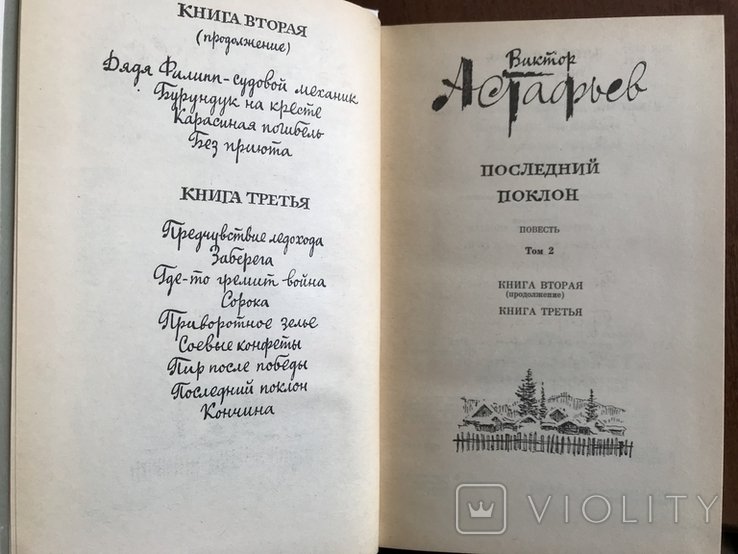 КНИГА ВТОРАЯ
(продолжение)
Дядя Филипп - судовой механик
Бурундук на кресте
Карасиная погибель
Без приюта
КНИГА ТРЕТЬЯ
Предчувствие ледохода
Заберега
Где-то гремит война
Сорока
Приворотное зелье
Соевые конфеты
Пир после победы
Последний поклон
Кончина
Виктор
Астафьев
ПОСЛЕДНИЙ
ПОКЛОН
ПОВЕСТЬ
Том 2
КНИГА ВТОРАЯ
(продолжение)
КНИГА ТРЕТЬЯ
VIOLITY